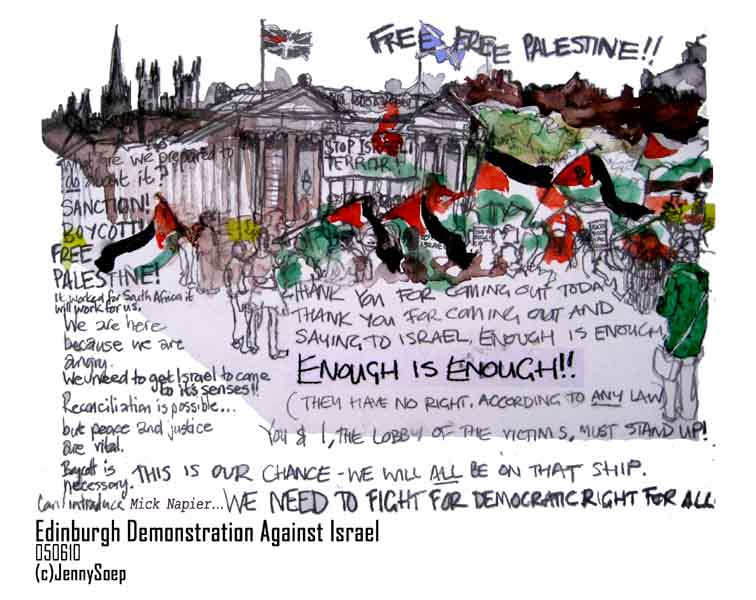 FREE FREE PALESTINE!!
STOP ISRAELI
TERROR!
What are we prepared to
do about it?
SANCTION!
BOYCOTT!
FREE
PALESTINE!
It worked for South Africa it
will work for us.
We are here
because we are
angry.
We need to get Israel to come
to it's senses!!
Reconciliation is possible...
but peace and justice
are vital.
Boycott is
necessary.
THANK YOU FOR COMING OUT TODAY
THANK YOU FOR COMING OUT AND
SAYING TO ISRAEL, ENOUGH IS ENOUGH
ENOUGH IS ENOUGH!!
(THEY HAVE NO RIGHT. ACCORDING TO ANY LAW
YOU & I, THE LOBBY OF THE VICTIMS, MUST STAND UP!
THIS IS OUR CHANCE - WE WILL ALL BE ON THAT SHIP.
Can I introduce Mick Napier... WE NEED TO FIGHT FOR DEMOCRATIC RIGHT FOR ALL
Edinburgh Demonstration Against Israel
050610
(c)JennySoep